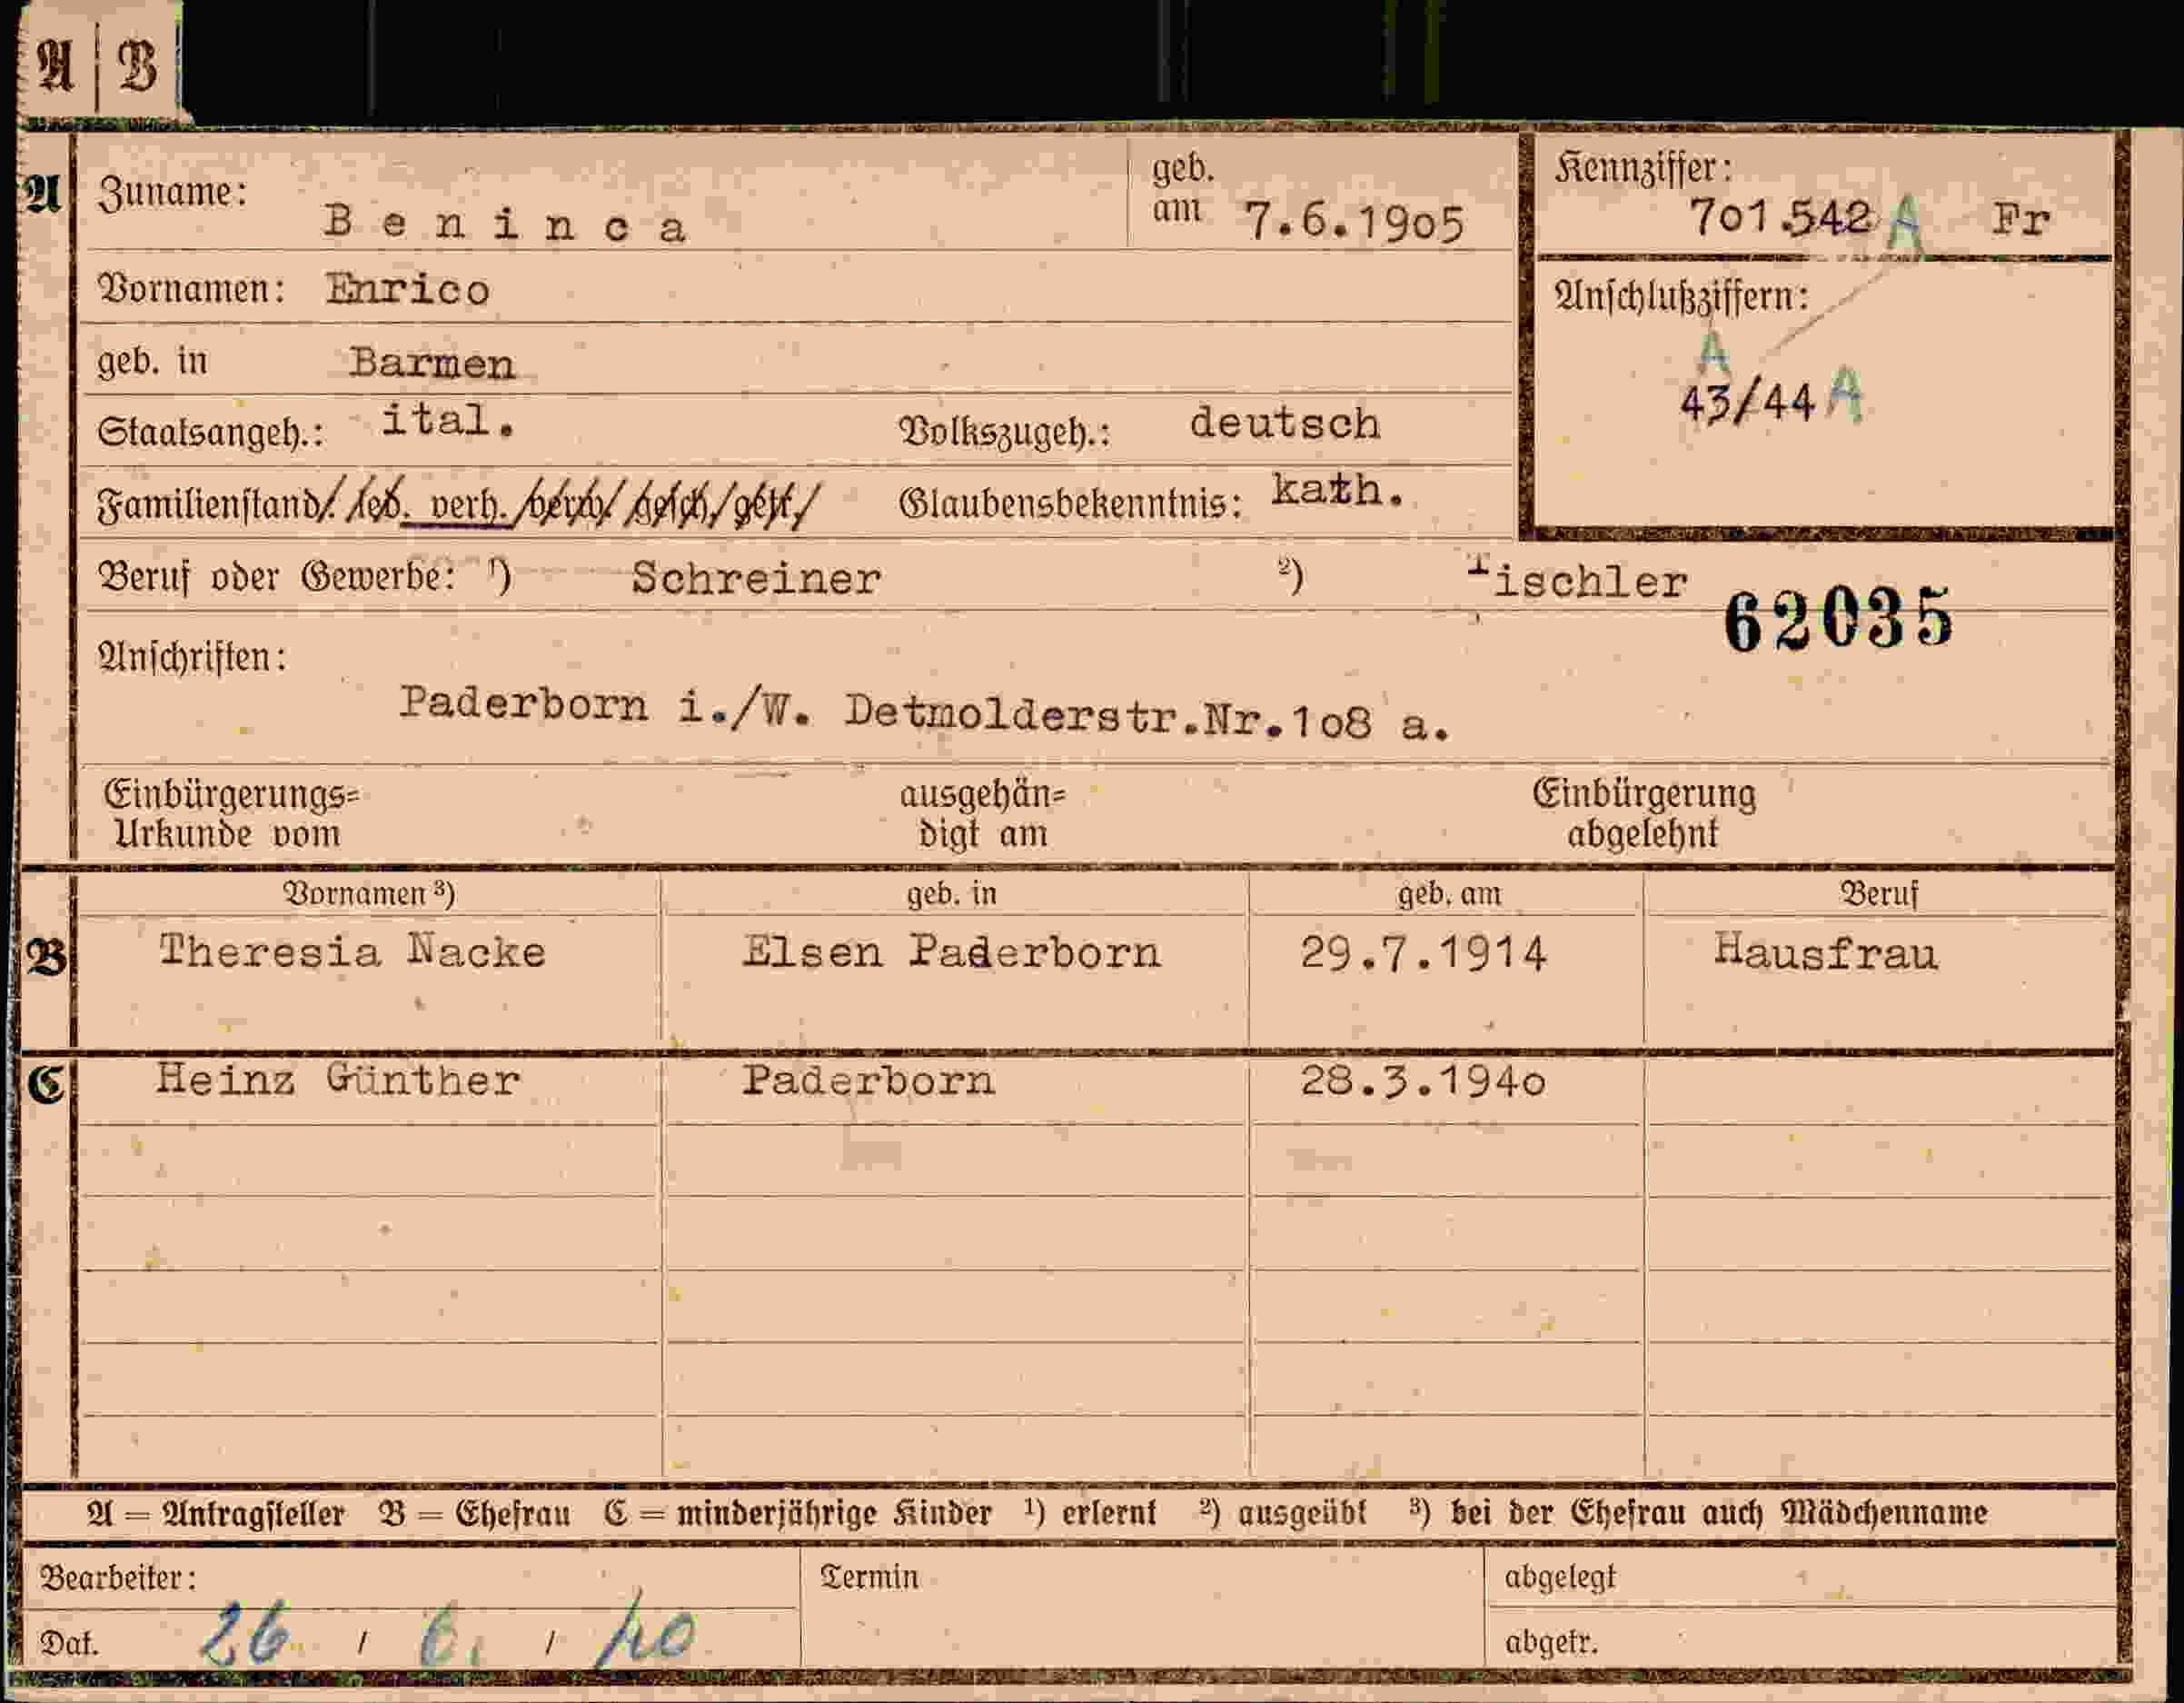 A | B
A Zuname: Beninca geb. am 7.6.1905 Kennziffer: 701.542 A Fr
Vornamen: Enrico
Anschlußziffern:
A
43/44 A
geb. in Barmen
Staatsangeh.: ital. Volkszugeh.: deutsch
Familienstand: led. verh. verw. gesch. getr. Glaubensbekenntnis: kath.
Beruf oder Gewerbe: ¹) Schreiner ²) Tischler
62035
Anschriften:
Paderborn i./W. Detmolderstr.Nr.108 a.
Einbürgerungs= Urkunde vom ausgehän= digt am Einbürgerung abgelehnt
Vornamen ³) geb. in geb. am Beruf
B Theresia Nacke Elsen Paderborn 29.7.1914 Hausfrau
C Heinz Günther Paderborn 28.3.1940
A = Antragsteller B = Ehefrau C = minderjährige Kinder ¹) erlernt ²) ausgeübt ³) bei der Ehefrau auch Mädchenname
Bearbeiter: Termin abgelegt
Dat. 26 / 6. / 40 abgetr.